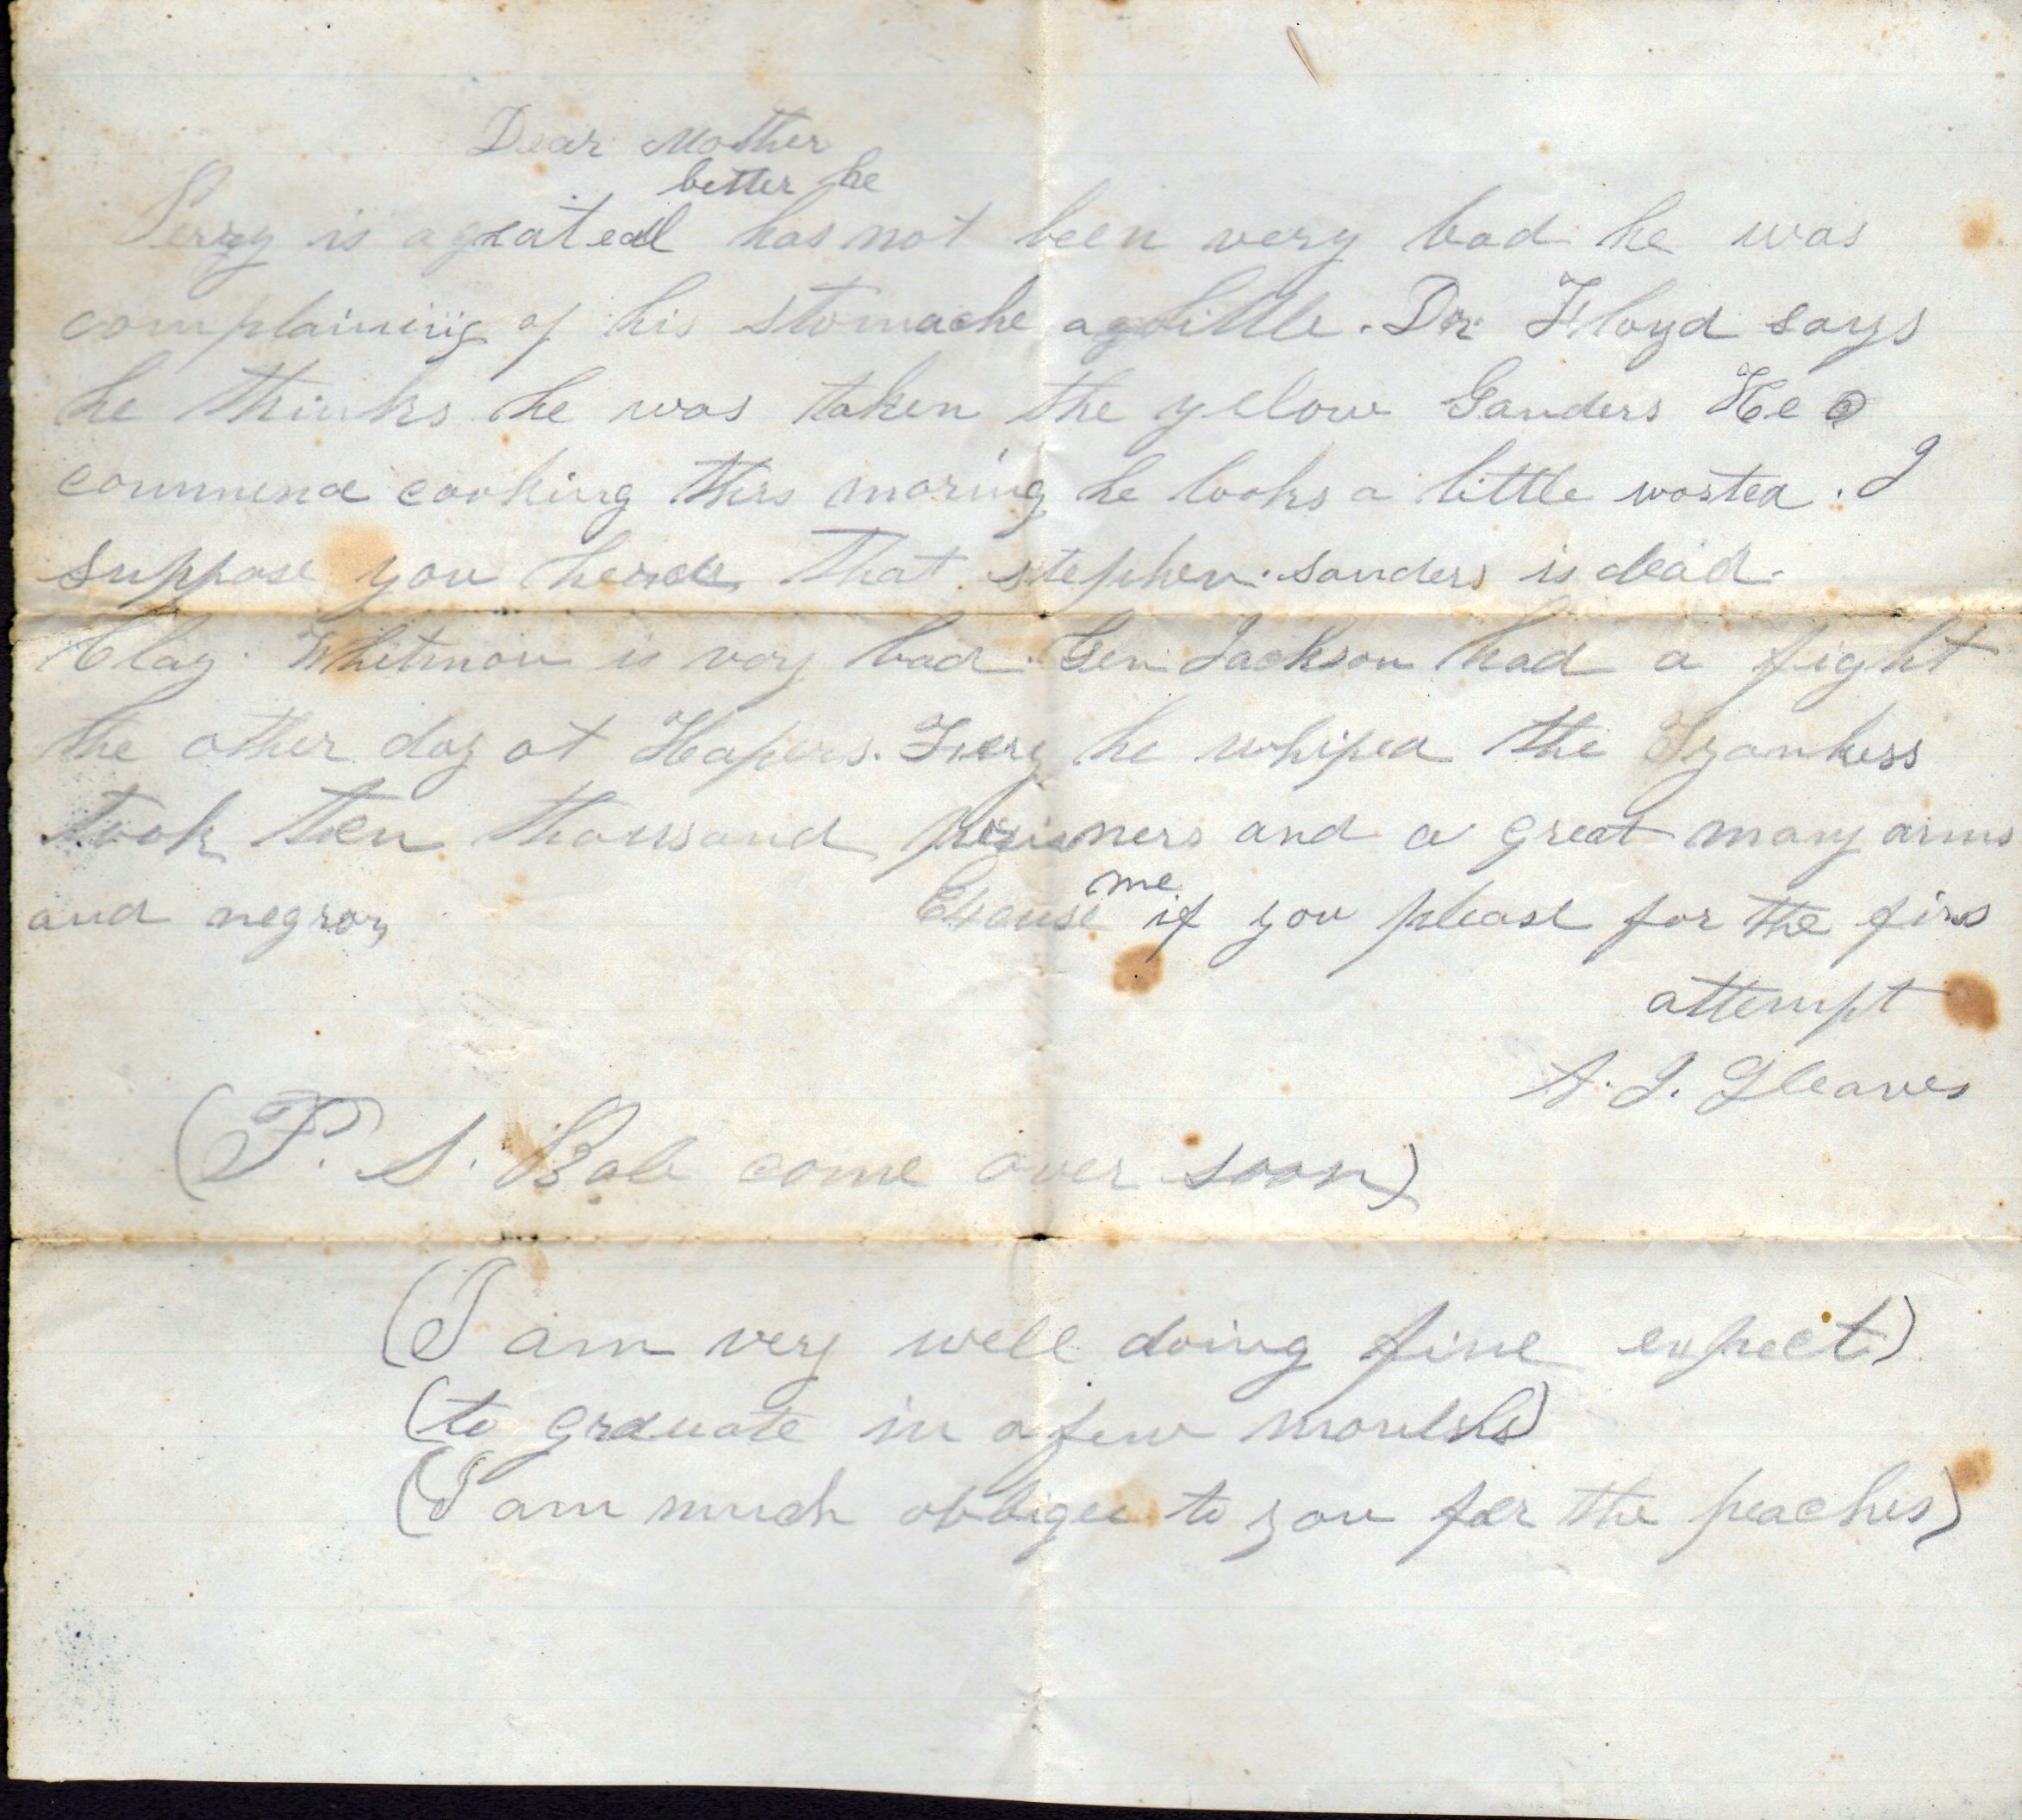 Dear Mother
better he
Perry is a great eall has not been very bad he was
complaining of his stomache a little . Dr Floyd says
he thinks he was taken the yelow Ganders He
commence cooking this moring he looks a little wosted . I
suppose you herde that stephen . sanders is dead .
Clay . Whitman is vary bad . Gen Jackson had a fight
the other day at Hapers . Frery he whiped the Yankess
took ten thousand prisiners and a great many arms
me
and negros, Excuse if you please for the firs
attempt
A. J. Gleaves
(P. S. Bob come over soon)
(I am very well doing fine expect)
(to graduate in a few months)
(I am much obbiged to you for the peaches)